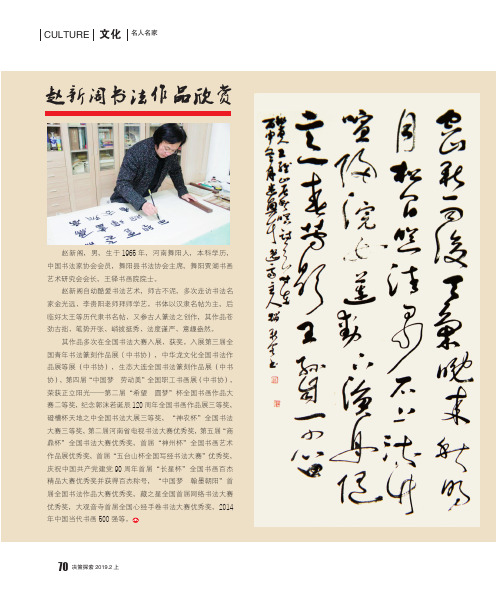 CULTURE 文化 名人名家
赵新阁书法作品欣赏
赵新阁，男，生于 1965 年，河南舞阳人，本科学历，
中国书法家协会会员，舞阳县书法协会主席，舞阳贾湖书画
艺术研究会会长、王铎书画院院士。
赵新阁自幼酷爱书法艺术，师古不泥。多次走访书法名
家金光远、李贵阳老师拜师学艺。书体以汉隶名帖为主，后
临好太王等历代隶书名帖，又参古人篆法之创作，其作品苍
劲古拙、笔势开张、峭拔挺秀、法度谨严、意趣盎然。
其作品多次在全国书法大赛入展、获奖。入展第三届全
国青年书法篆刻作品展（中书协），中华龙文化全国书法作
品展等展（中书协），生态大连全国书法篆刻作品展（中书
协），第四届“中国梦　劳动美”全国职工书画展（中书协）。
荣获正立阳光——第二届“希望　圆梦”杯全国书画作品大
赛二等奖，纪念郭沫若诞辰 120 周年全国书画作品展三等奖，
杯天地之中全国书法大展三等奖，“神农杯”全国书法
大赛三等奖，第二届河南省电视书法大赛优秀奖，第五届“商
鼎杯”全国书法大赛优秀奖，首届“神州杯”全国书画艺术
作品展优秀奖，首届“五台山杯全国写经书法大赛”优秀奖，
庆祝中国共产党建党 90 周年首届“长星杯”全国书画百杰
精品大赛优秀奖并获得百杰称号，“中国梦　翰墨朝阳”首
届全国书法作品大赛优秀奖，藏之星全国首届网络书法大赛
优秀奖，大观音寺首届全国心经手卷书法大赛优秀奖，2014
年中国当代书画 500 强等。
空山新雨後天氣晚來秋明
月松間照清泉石上流竹
喧歸浣女蓮動下漁舟隨
意春芳歇王孫自可留
70 决策探索 2019.2 上